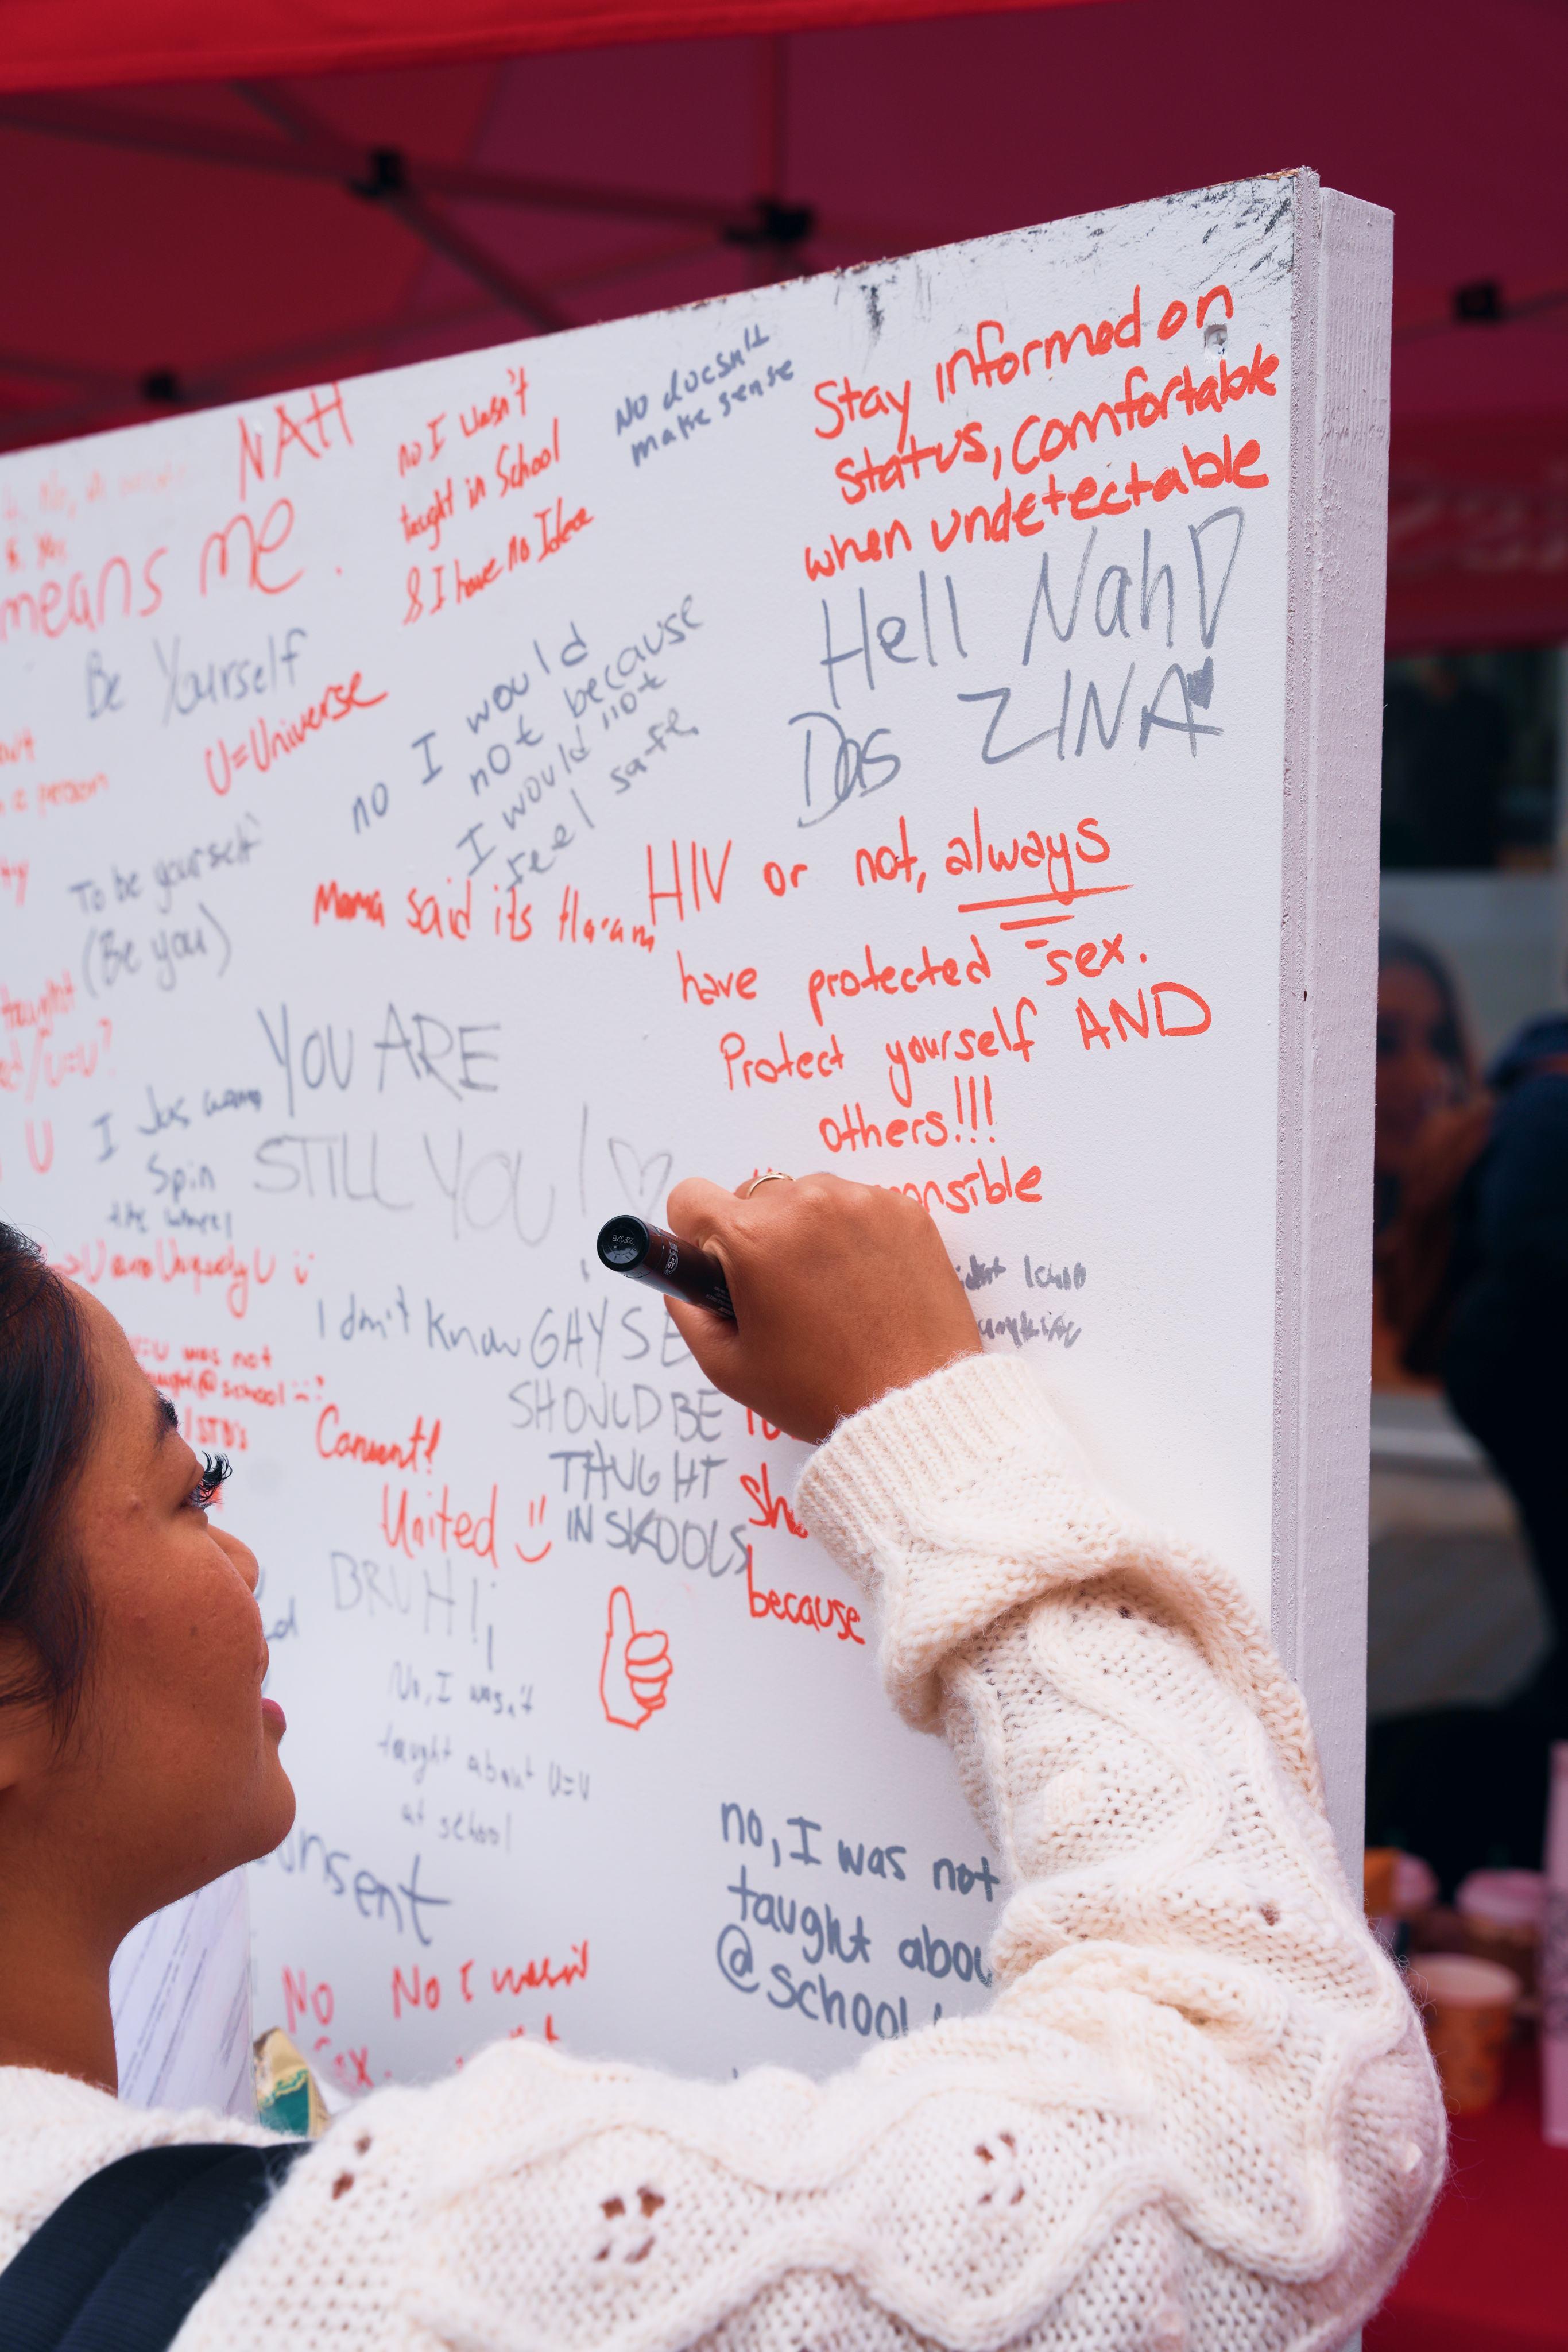 NAH
means me.
no I wasn't
taught in School
& I have no Idea
No doesn't
make sense
Stay informed on
status, comfortable
when undetectable
Hell Nah D
Das ZINA
Be Yourself
U=Universe
no I would
not because
I would not
feel safe
a person
To be yourself
(Be you)
Mama said its Haram
HIV or not, always
have protected sex.
Protect yourself AND
others!!!
taught
/U=U?
U
YOU ARE
STILL YOU!
I Jus wanna
Spin
the wheel
U are Uniquely U
I don't know
GAY SE
SHOULD BE
THUGHT
IN SKOOLS
U=U was not
taught @ school
/STD's
Consent!
United
BRUH!
because
No, I wasn't
taught about U=U
at school
onsent
no, I was not
taught abou
@school
No
Sex.
No I wasn't